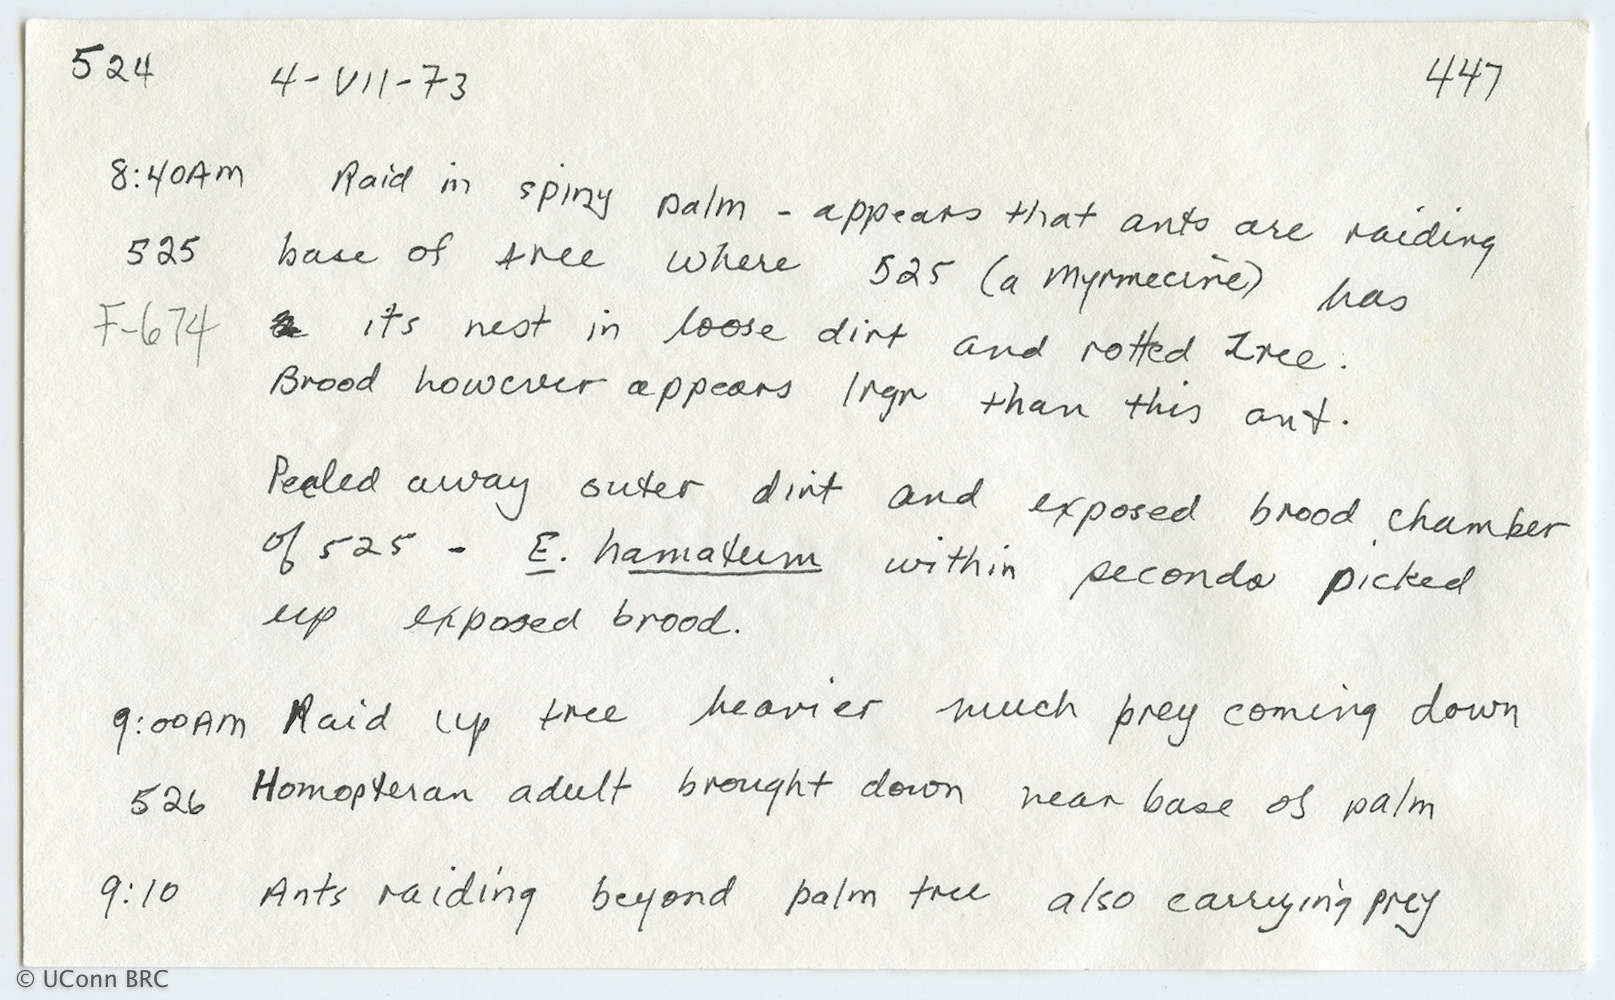 524 4-VII-73 447
8:40AM Raid in spiny palm - appears that ants are raiding
525 base of tree where 525 (a Myrmecine) has
F-674 its nest in loose dirt and rotted tree.
Brood however appears lrgr than this ant.
Peeled away outer dirt and exposed brood chamber
of 525 - E. hamatum within seconds picked
up exposed brood.
9:00AM Raid up tree heavier much prey coming down
526 Homopteran adult brought down near base of palm
9:10 Ants raiding beyond palm tree also carrying prey
© UConn BRC